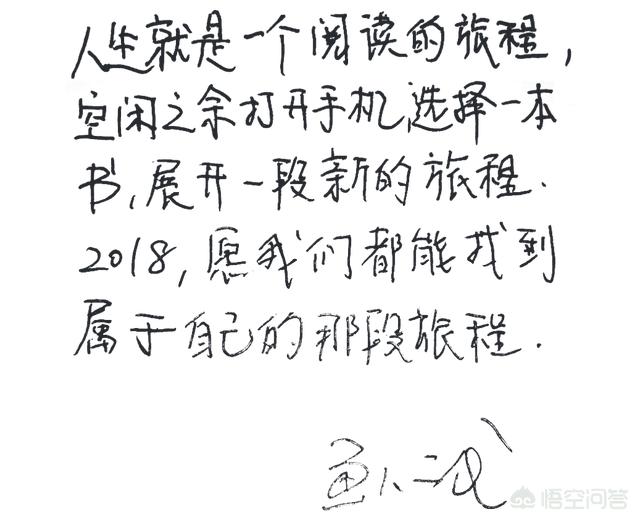 人生就是一个阅读的旅程,
空闲之余打开手机,选择一本
书,展开一段新的旅程.
2018,愿我们都能找到
属于自己的那段旅程.
悟空问答